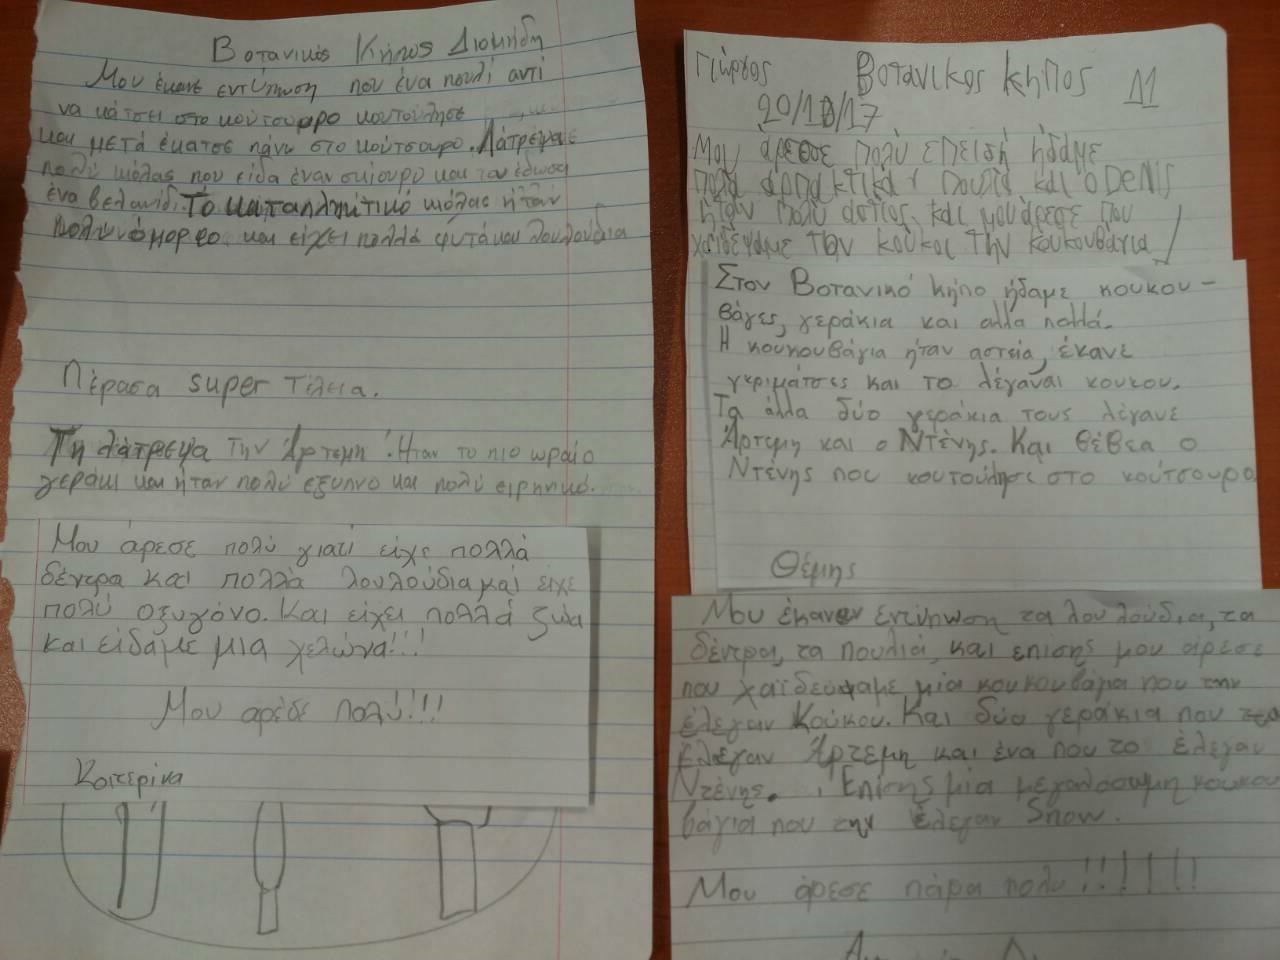 Βοτανικός Κήπος Διομήδη
Μου έκανε εντύπωση που ένα πουλί αντί
να κάτσει στο κούτσουρο κουτούλησε
και μετά έκατσε πάνω στο κούτσουρο. Λάτρεψα
πολύ κιόλας που είδα έναν σκίουρο και του έδωσα
ένα βελανίδι. Το καταπληκτικό κιόλας ήταν
πολυνόμορφο και είχει πολλά φυτά και λουλούδια
Πέρασα super τέλεια.
Τη λάτρεψα την Άρτεμη! Ήταν το πιο ωραίο
γεράκι και ήταν πολύ εξυπνο και πολύ ειρηνικό.
Μου άρεσε πολύ γιατί είχε πολλά
δέντρα και πολλά λουλούδια και είχε
πολύ οξυγόνο. Και είχει πολλά ζώα
και είδαμε μια χελώνα!!!
Μου αρέσε πολύ!!!
Κατερίνα
Γιώργος Βοτανικος κηπος Δ1
20/10/17
Μου άρεσε πολύ επειδή ήδαμε
πολά αρπακτικά πουλιά και ο DeNiS
ήταν πολύ αστίος. και μου άρεσε που
χαϊδέψαμε τον κούκοι την κουκουβάγια
Στον Βοτανικό κήπο ήδαμε κουκου-
βάγιες, γεράκια και αλλα πολλά.
Η κουκουβάγια ήταν αστεία, έκανε
γκριμάτσες και το λέγαναι κουκου.
Τα άλλα δύο γεράκια τους λέγανε
Άρτεμη και ο Ντένης. Και θέβεα ο
Ντένης που κουτούλησε στο κούτσουρο
Θέμης
Μου έκαναν εντύπωση τα λουλούδια, τα
δέντρα, τα πουλιά, και επίσης μου άρεσε
που χαϊδεύψαμε μία κουκουβάγια που την
έλεγαν Κούκου. Και δύο γεράκια που το
έλεγαν Άρτεμη και ένα που το έλεγαν
Ντένης. Επίσης μία μεγαλόσωμη κουκου
βάγια που την έλεγαν Snow.
Μου άρεσε πάρα πολυ!!!!!!